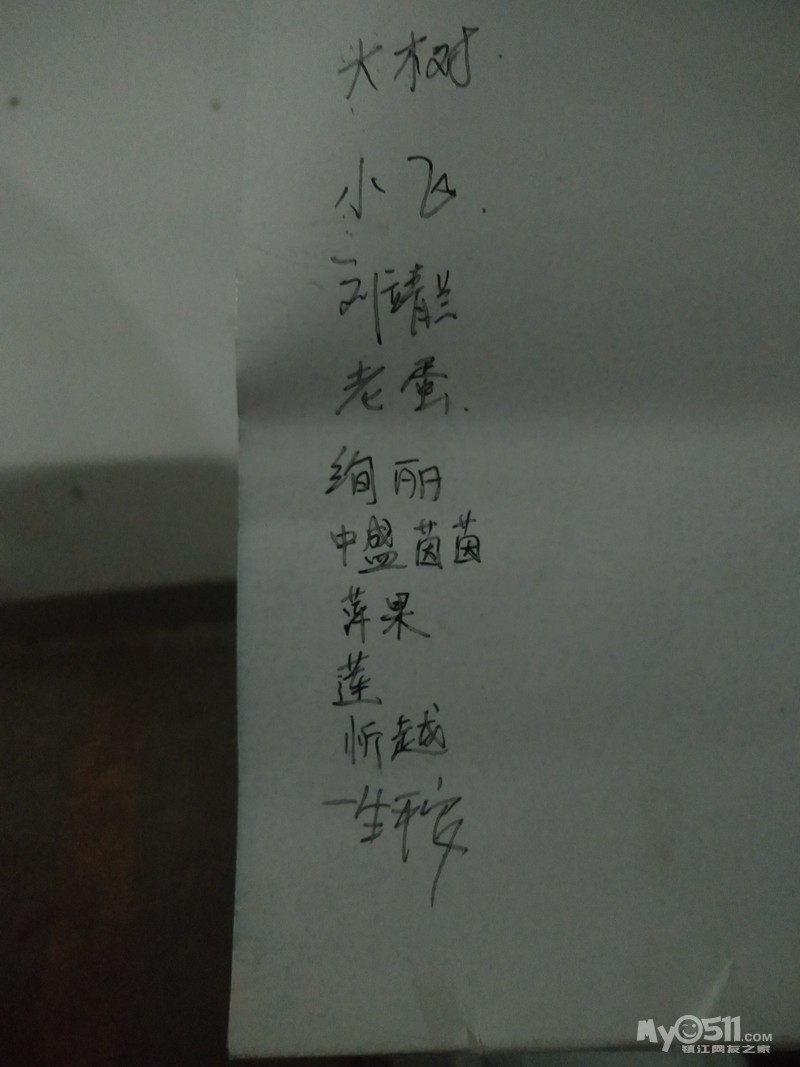 大树.
小飞.
刘靖兰
老蛋.
绚丽
中盛茵茵
萍果
莲
忻越
一生平安
My0511.COM
镇江网友之家